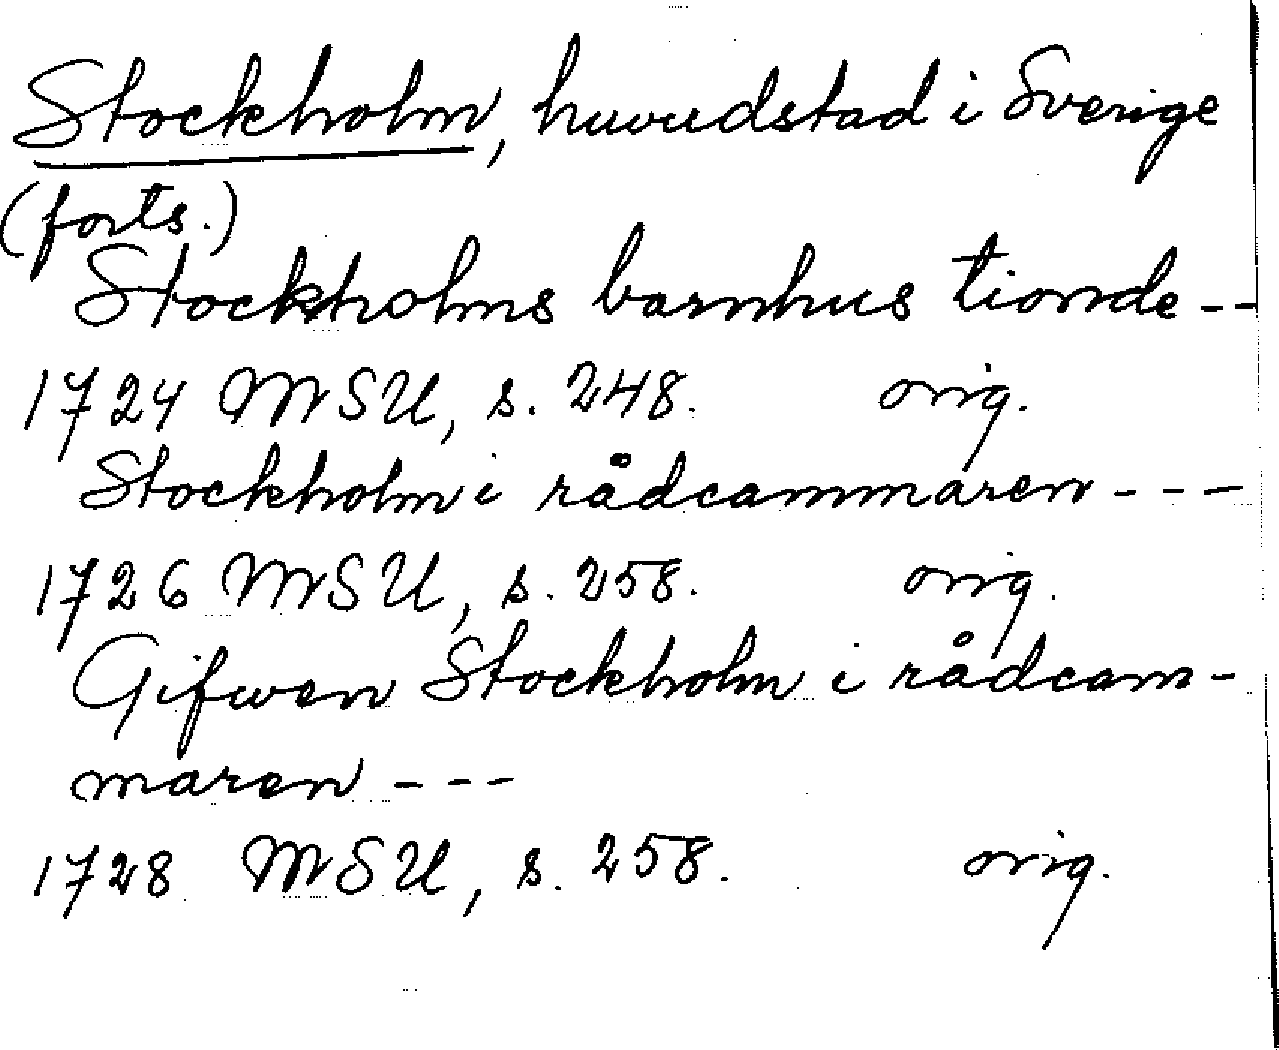 Stockholm, huvudstad i Sverige
(forts.)
Stockholms barnhus tionde --
1724 MSU, s. 248. orig.
Stockholm i rådcammaren ---
1726 MSU, s. 258. orig.
Gifwen Stockholm i rådcam-
maren ---
1728 MSU, s. 258. orig.